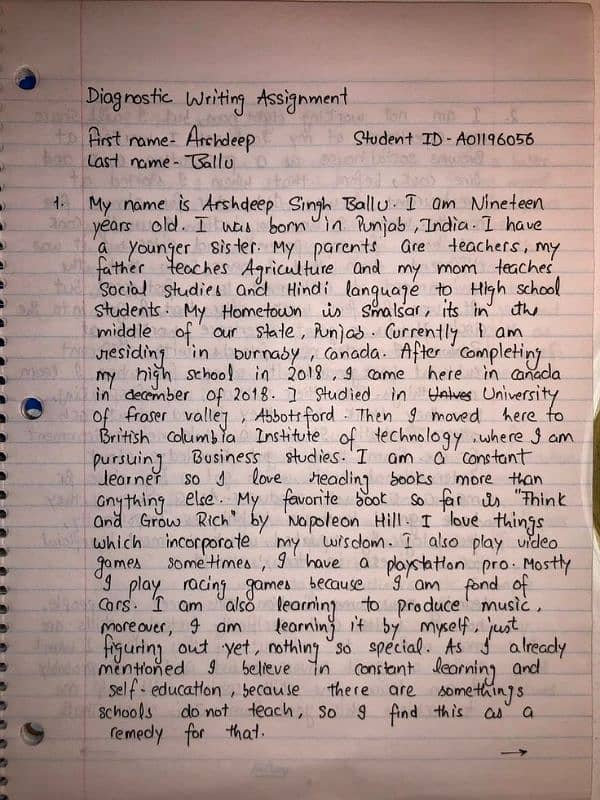 Diagnostic Writing Assignment
First name- Arshdeep Student ID - A01196056
Last name - Ballu
1. My name is Arshdeep Singh Ballu. I am Nineteen
years old. I was born in Punjab, India. I have
a younger sister. My parents are teachers, my
father teaches Agriculture and my mom teaches
Social studies and Hindi language to High school
students. My Hometown is Smalsar, its in the
middle of our state, Punjab. Currently I am
residing in burnaby, Canada. After completing
my high school in 2018, I came here in canada
in december of 2018. I studied in Unives University
of fraser valley, Abbottsford. Then I moved here to
British columbia Institute of technology, where I am
pursuing Business studies. I am a constant
learner so I love reading books more than
anything else. My favorite book so far is "Think
and Grow Rich" by Napoleon Hill. I love things
which incorporate my wisdom. I also play video
games sometimes, I have a playstation pro. Mostly
I play racing games because I am fond of
cars. I am also learning to produce music,
moreover, I am learning it by myself, just
figuring out yet, nothing so special. As I already
mentioned I believe in constant learning and
self-education, because there are somethings
schools do not teach, so I find this as a
remedy for that.
→